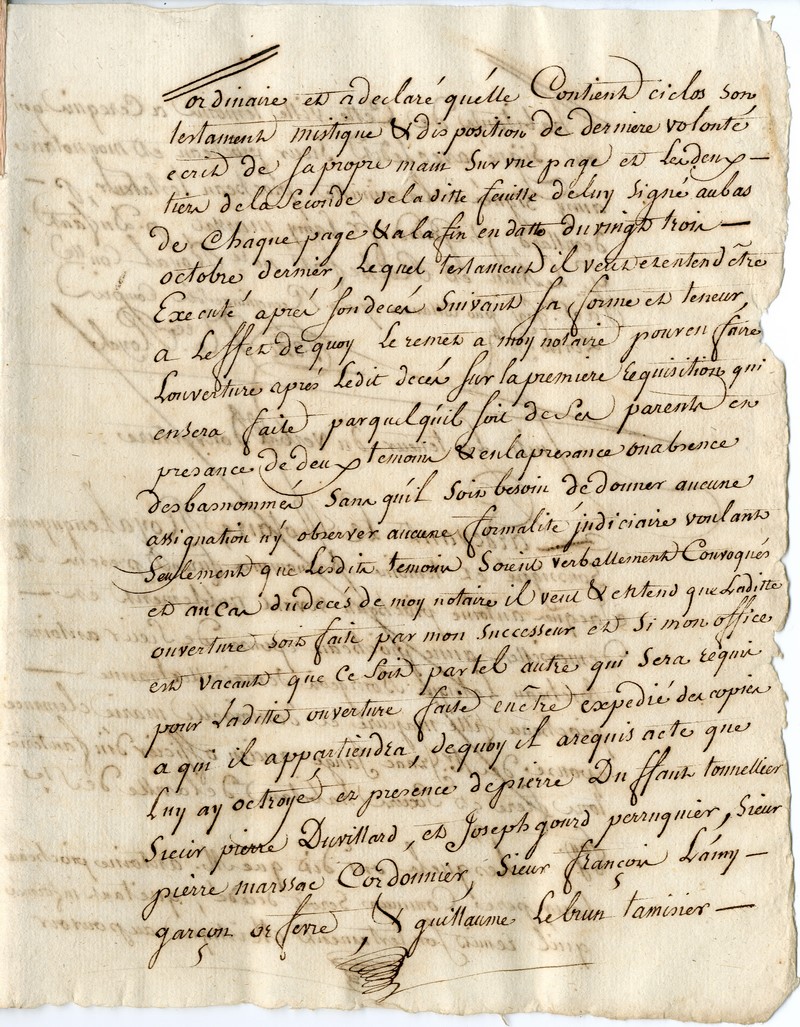 ordinaire et a declaré qu'elle Contient ciclos son
testament mistique & disposition de derniere volonté
ecrit de sa propre main sur une page et les deux
tiers de la seconde de la ditte feuille de luy signé au bas
de chaque page & a la fin en datte du vingt trois
octobre dernier, lequel testament il veut et entend être
Executé aprés son decés suivant sa forme et teneur,
a L'effet de quoy le remet a moy notaire pour en faire
Louverture aprés ledit decés sur la premiere requisition qui
en sera faite par quelqu'il soit de ses parents en
presance de deux temoins & en la presance ou absence
des bas nommés sans qu'il soit besoin de donner aucune
assignation n'y observer aucune formalité judiciaire voulant
seulement que lesdits temoins soient verballement Convoqués
et au cas du decés de moy notaire il veut & entend que laditte
ouverture soit faite par mon successeur et si mon office
est vacant que ce soit par tel autre qui sera requis
pour laditte ouverture faite en être expedié des copies
a qui il appartiendra, de quoy il a requis acte que
Luy ay octroyé en presence de pierre Duffaut tonnellier
Sieur pierre Duvillard, et Joseph gourd perruquier, Sieur
pierre marssac Cordonnier, Sieur françois Lamy
garçon orfevre, & guillaume Lebrun tamisier